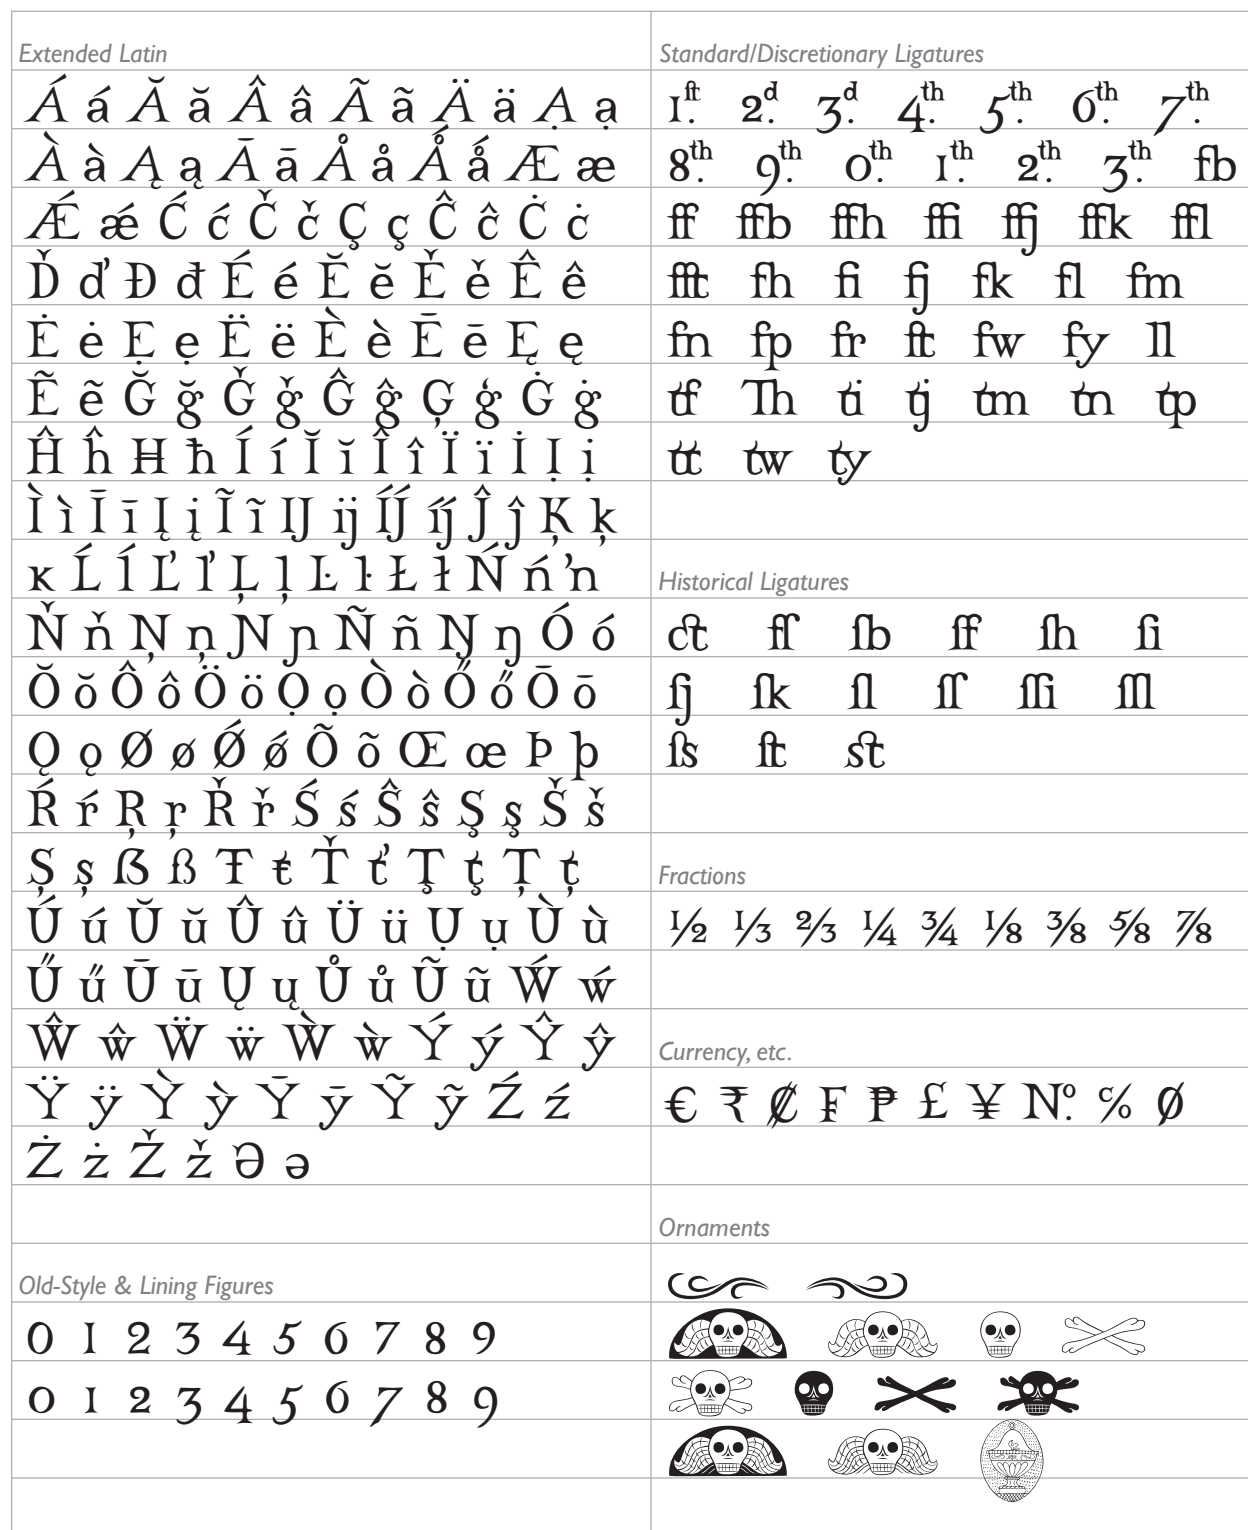 Extended Latin
Á á Ă ă Â â Ã ã Ä ä Ạ ạ
À à Ą ą Ā ā Å å Ǻ ǻ Æ æ
Ǽ ǽ Ć ć Č č Ç ç Ĉ ĉ Ċ ċ
Ď ď Đ đ É é Ĕ ĕ Ě ě Ê ê
Ė ė Ẹ ẹ Ë ë È è Ē ē Ę ę
Ẽ ẽ Ğ ğ Ǧ ǧ Ĝ ĝ Ģ ģ Ġ ġ
Ĥ ĥ Ħ ħ Í í Ĭ ĭ Î î Ï ï İ Ị ị
Ì ì Ī ī Į į Ĩ ĩ IJ ij ÍJ́ íj́ Ĵ ĵ Ķ ķ
ĸ Ĺ ĺ Ľ ľ Ļ ļ Ŀ ŀ Ł ł Ń ń ŉ
Ň ň Ņ ņ Ɲ ɲ Ñ ñ Ŋ ŋ Ó ó
Ŏ ŏ Ô ô Ö ö Ọ ọ Ò ò Ő ő Ō ō
Ǫ ǫ Ø ø Ǿ ǿ Õ õ Œ œ Þ þ
Ŕ ŕ Ŗ ŗ Ř ř Ś ś Ŝ ŝ Ş ş Š š
Ș ș ẞ ß Ŧ ŧ Ť ť Ţ ţ Ț ț
Ú ú Ŭ ŭ Û û Ü ü Ụ ụ Ù ù
Ű ű Ū ū Ų ų Ů ů Ũ ũ Ẃ ẃ
Ŵ ŵ Ẅ ẅ Ẁ ẁ Ý ý Ŷ ŷ
Ÿ ÿ Ỳ ỳ Ȳ ȳ Ỹ ỹ Ź ź
Ż ż Ž ž Ə ə
Old-Style & Lining Figures
0 1 2 3 4 5 6 7 8 9
0 1 2 3 4 5 6 7 8 9
Standard/Discretionary Ligatures
1.ſt 2.d 3.d 4.th 5.th 6.th 7.th
8.th 9.th 0.th 1.th 2.th 3.th fb
ff ffb ffh ffi ffj ffk ffl
fft fh fi fj fk fl fm
fn fp fr ft fw fy ll
tf Th ti tj tm tn tp
tt tw ty
Historical Ligatures
ct fſ ſb ſf ſh ſi
ſj ſk ſl ſſ ſſi ſſl
ſs ſt st
Fractions
½ ⅓ ⅔ ¼ ¾ ⅛ ⅜ ⅝ ⅞
Currency, etc.
€ ₹ ₡ ₣ ₱ £ ¥ № ℅ ∅
Ornaments